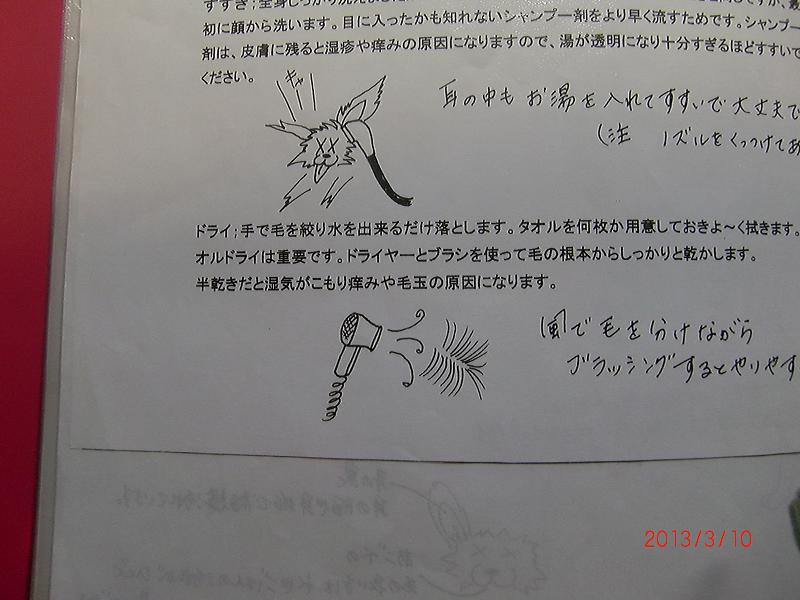 すすぎ；全身しっかり洗え
初に顔から洗います。目に入ったかも知れないシャンプー剤をより早く流すためです。シャンプー
剤は、皮膚に残ると湿疹や痒みの原因になりますので、湯が透明になり十分すぎるほどすすいで
ください。
キャー
耳の中も お湯を入れてすすいで大丈夫で
(注 ノズルをくっつけてあ
ドライ；手で毛を絞り水を出来るだけ落とします。タオルを何枚か用意しておきよ〜く拭きます。
オルドライは重要です。ドライヤーとブラシを使って毛の根本からしっかりと乾かします。
半乾きだと湿気がこもり痒みや毛玉の原因になります。
風で毛を分けながら
ブラッシングするとやりやす
2013/3/10